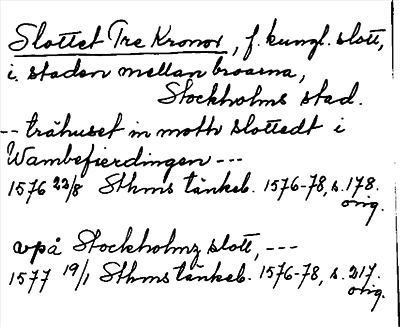 Slottet Tre Kronor, f. kungl. slott,
i staden mellan broarna,
Stockholms stad.
-- trähuset in moth slottedt i
Wambefierdingen ---
1576 23/8 Sthms tänkeb. 1576-78, s. 178.
orig.
vpå Stockholmz slott, ---
1577 19/1 Sthms tänkeb. 1576-78, s. 217.
orig.